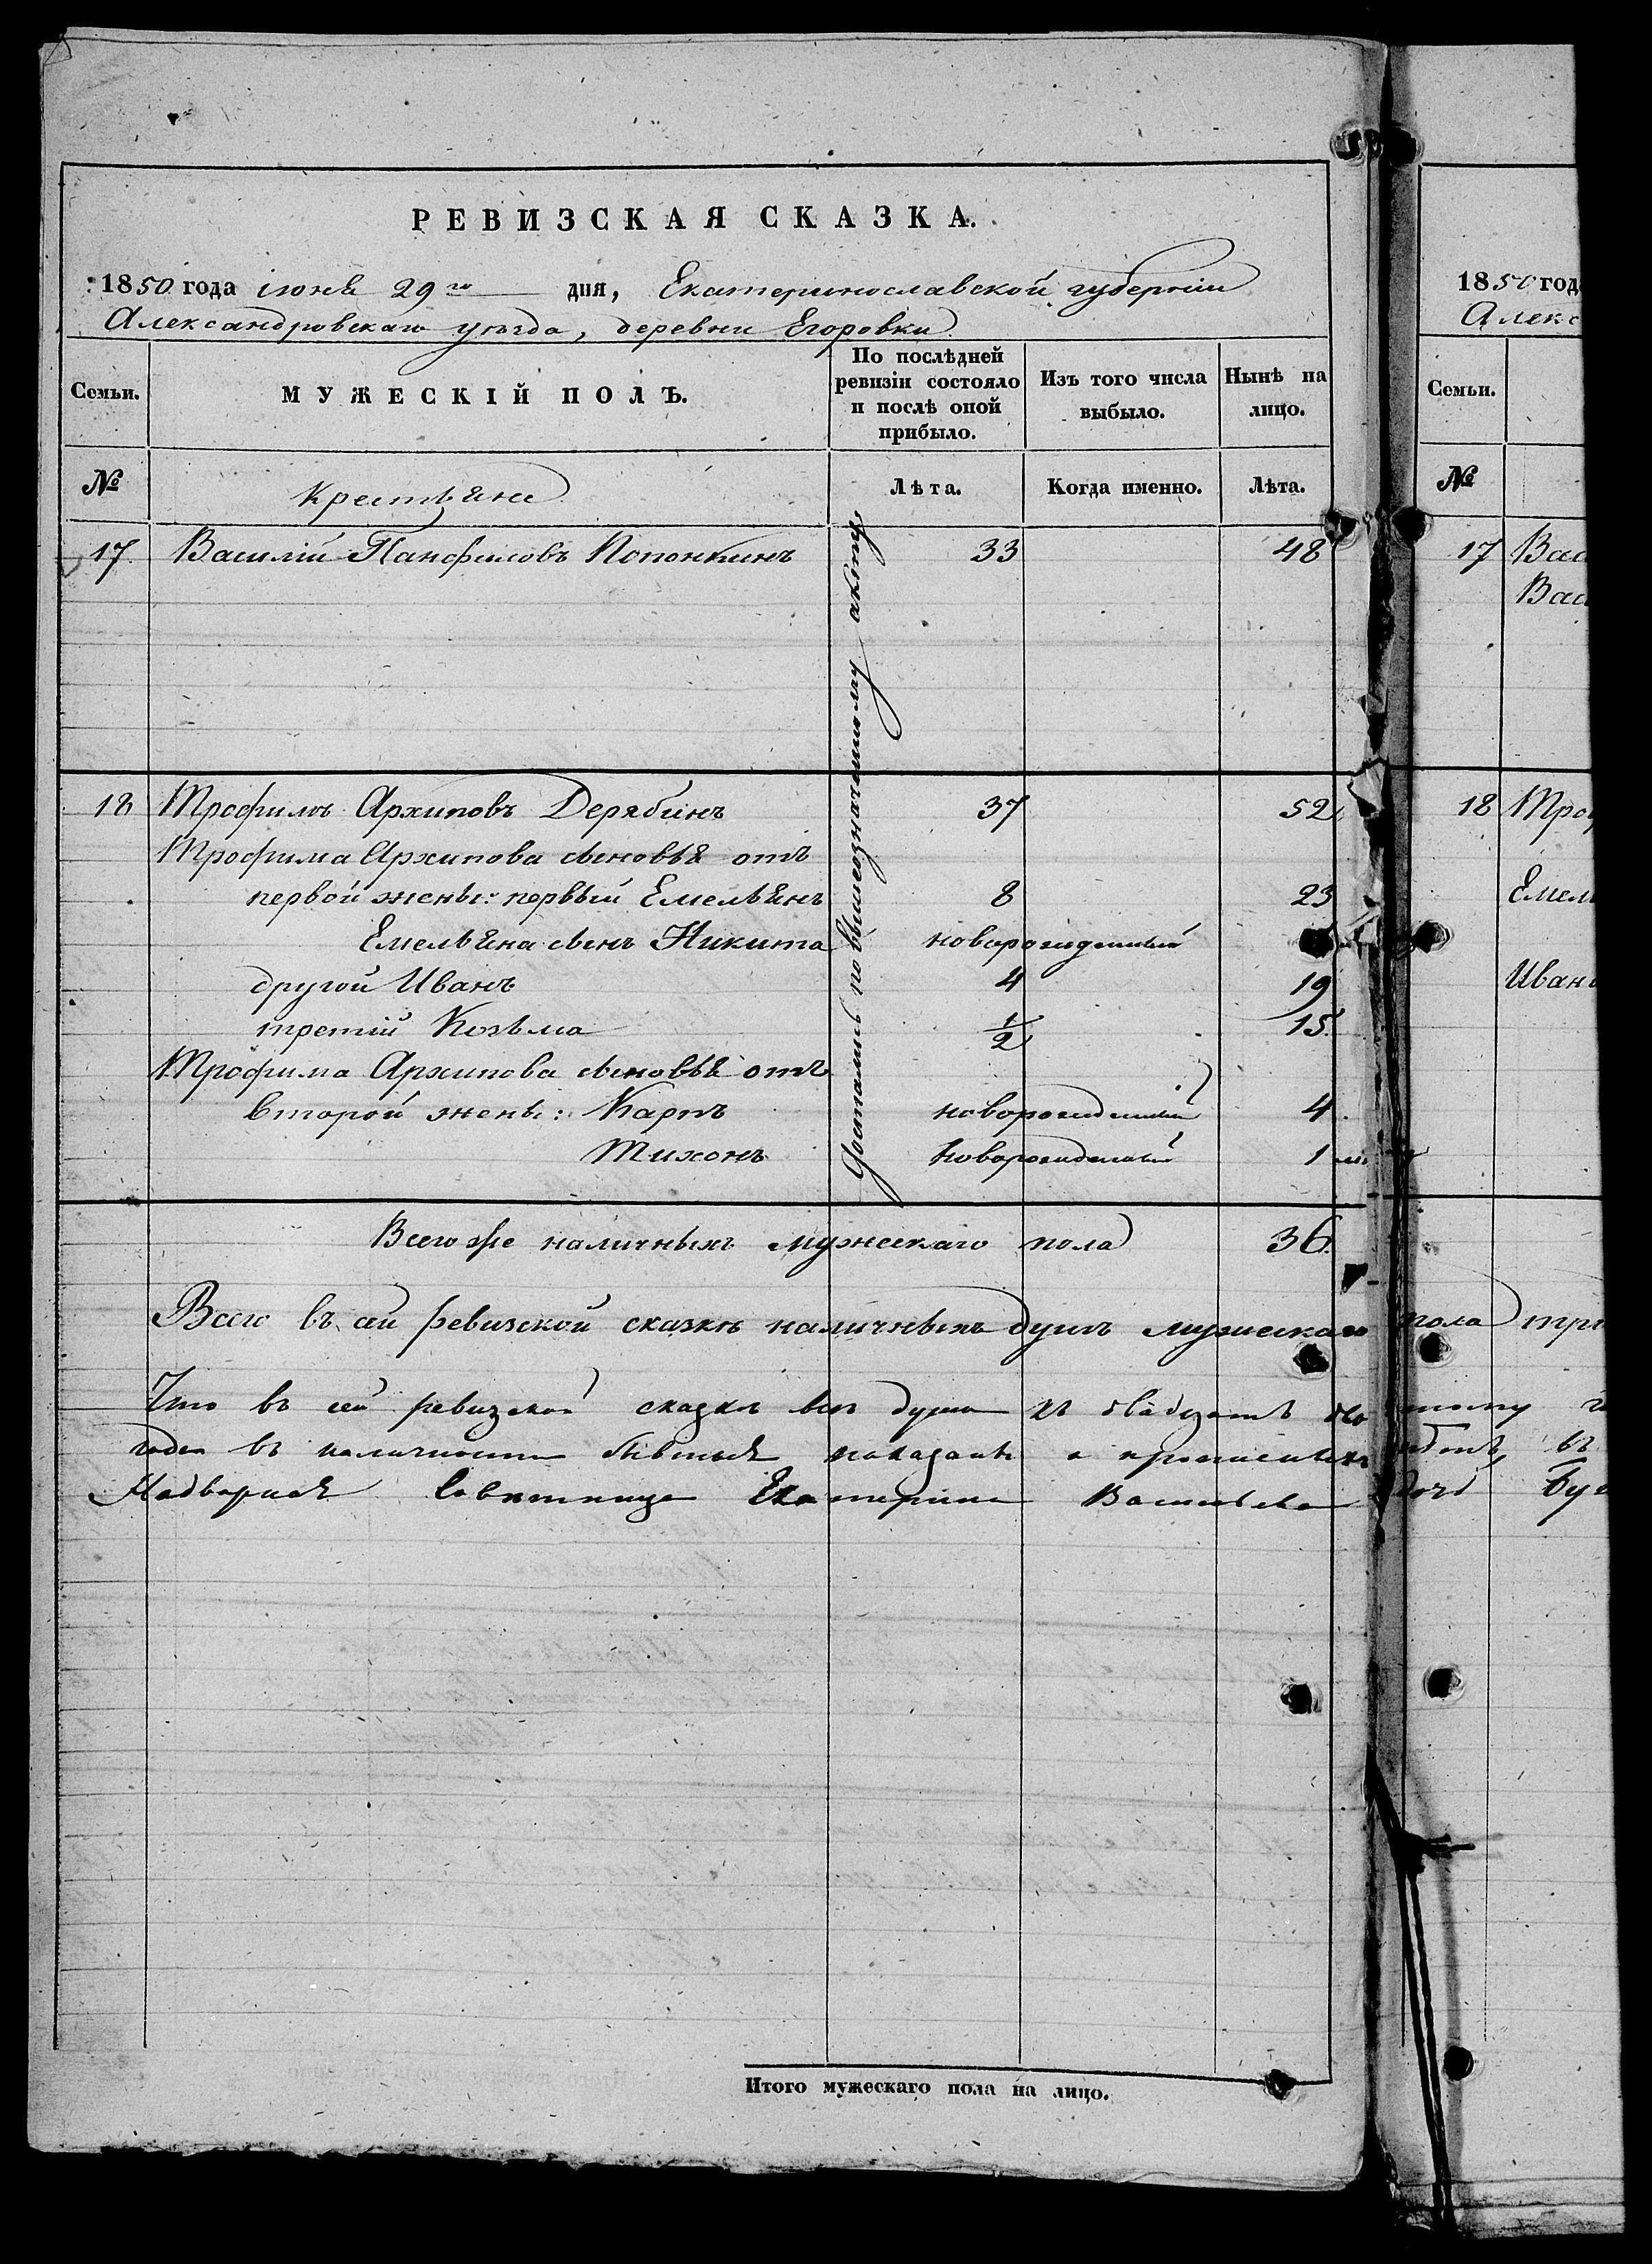 РЕВИЗСКАЯ СКАЗКА.
1850 года іюня 29го дня, Екатеринославской губерніи
Александровскаго уѣзда, деревни Егоровки
Семьи.
МУЖЕСКІЙ ПОЛЪ.
По послѣдней ревизіи состояло и послѣ оной прибыло.
Изъ того числа выбыло.
Нынѣ на лицо.
№
Крестьяне
Лѣта.
Когда именно.
Лѣта.
17. Василій Панфиловъ 33 48
18 Трофимъ Архиповъ Дерябинъ 37 52
Трофима Архипова сыновья отъ
первой жены: первый Емельянъ 8 23
Емельяна сынъ Никита новорожденный
другой Иванъ 4 19
третій Козьма 1/2 15.
Трофима Архипова сыновья отъ
второй жены: Карпъ новорожденный 4.
Тихонъ новорожденный 1
по вышеозначенному
Всего же наличныхъ мужескаго пола 36.
Всего въ сей ревизской сказкѣ наличныхъ душъ мужескаго пола
Что въ сей ревизской сказкѣ всѣ души къ
года въ наличности бывшія показаны а
Надворная Совѣтница Екатерина Васильева
Итого мужескаго пола на лицо.
1850 год
Алекс
Семьи.
№
17 Вас
Вас
18 Троф
Емель
Иван